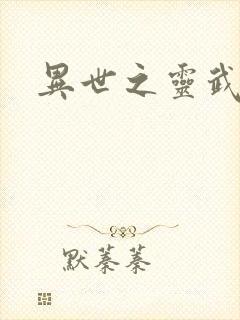 異世之靈武
默蓁蓁